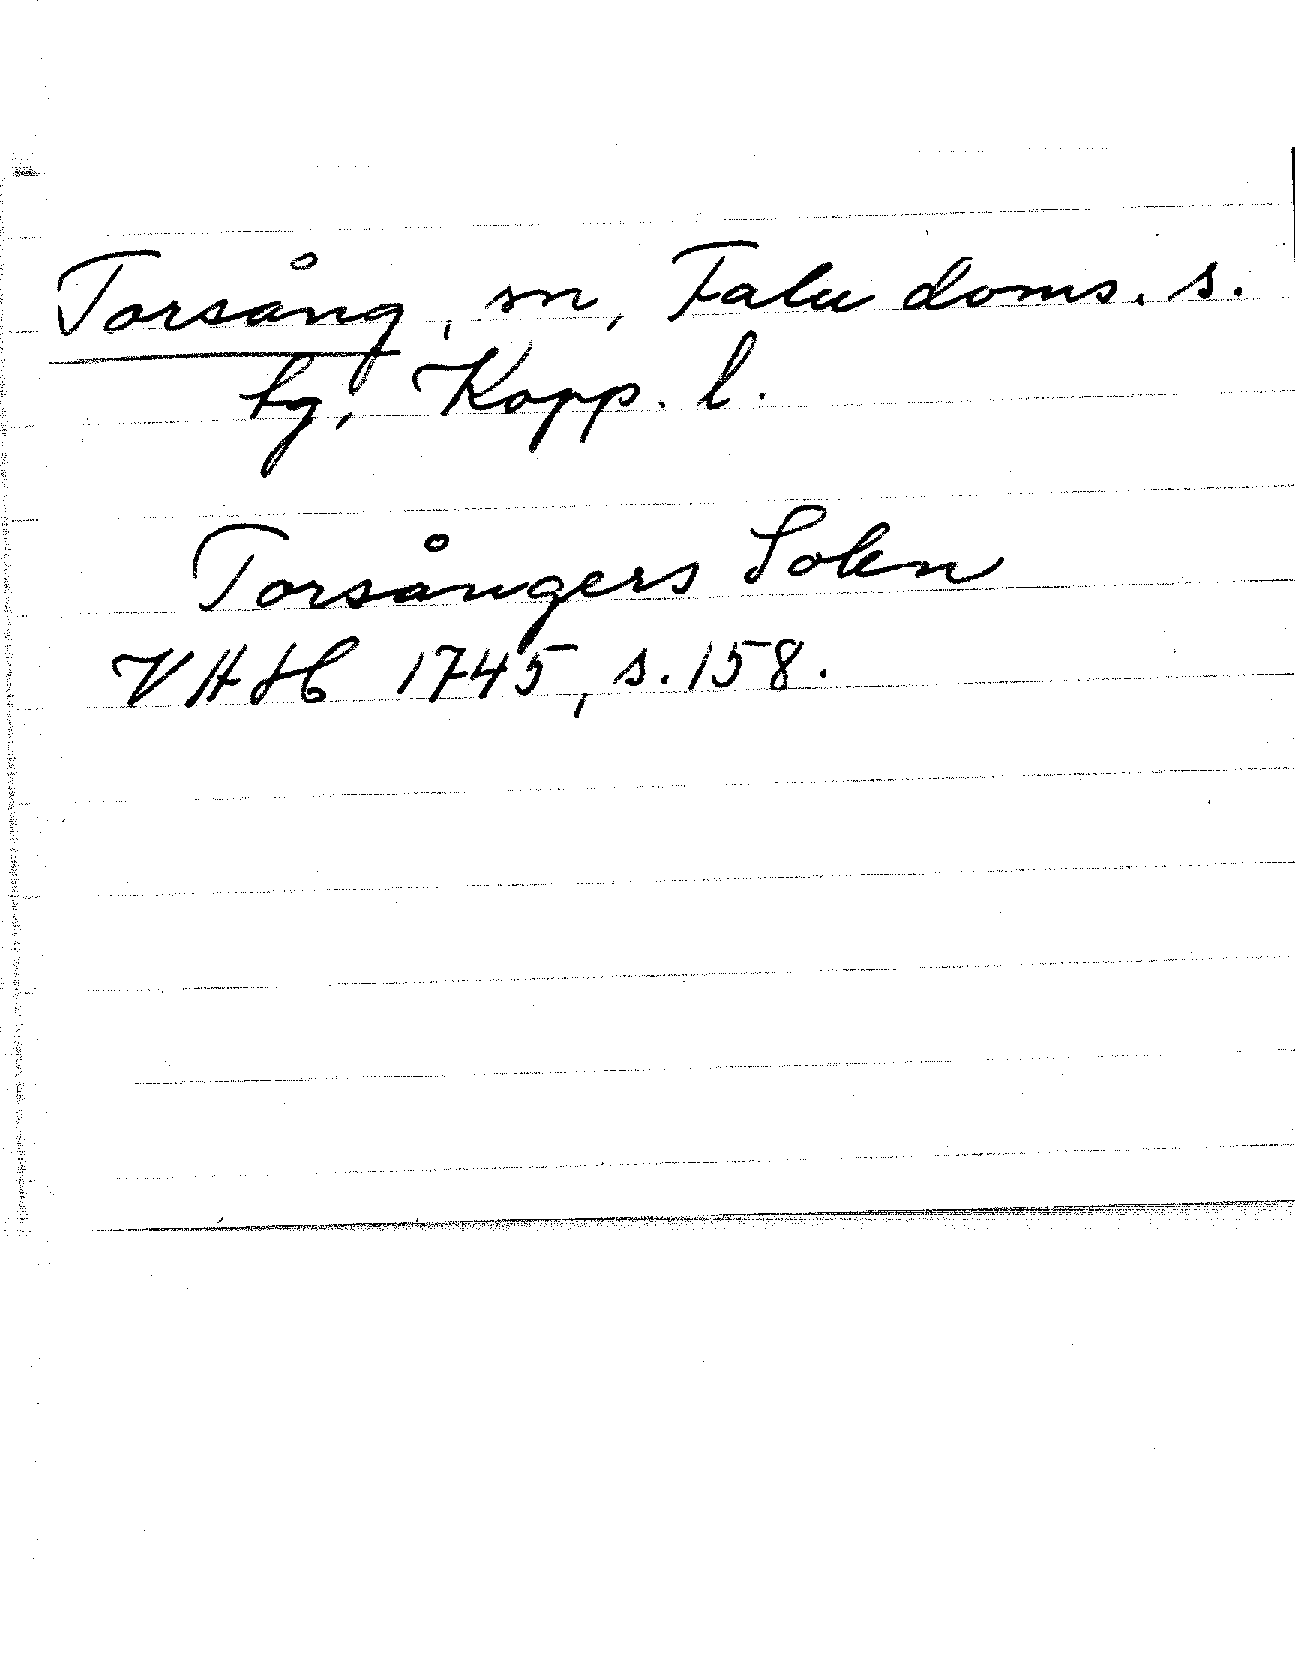 Torsång, sn, Falu doms. s.
tg, Kopp. l.
Torsångers Sokn
VHAH 1745, s. 158.